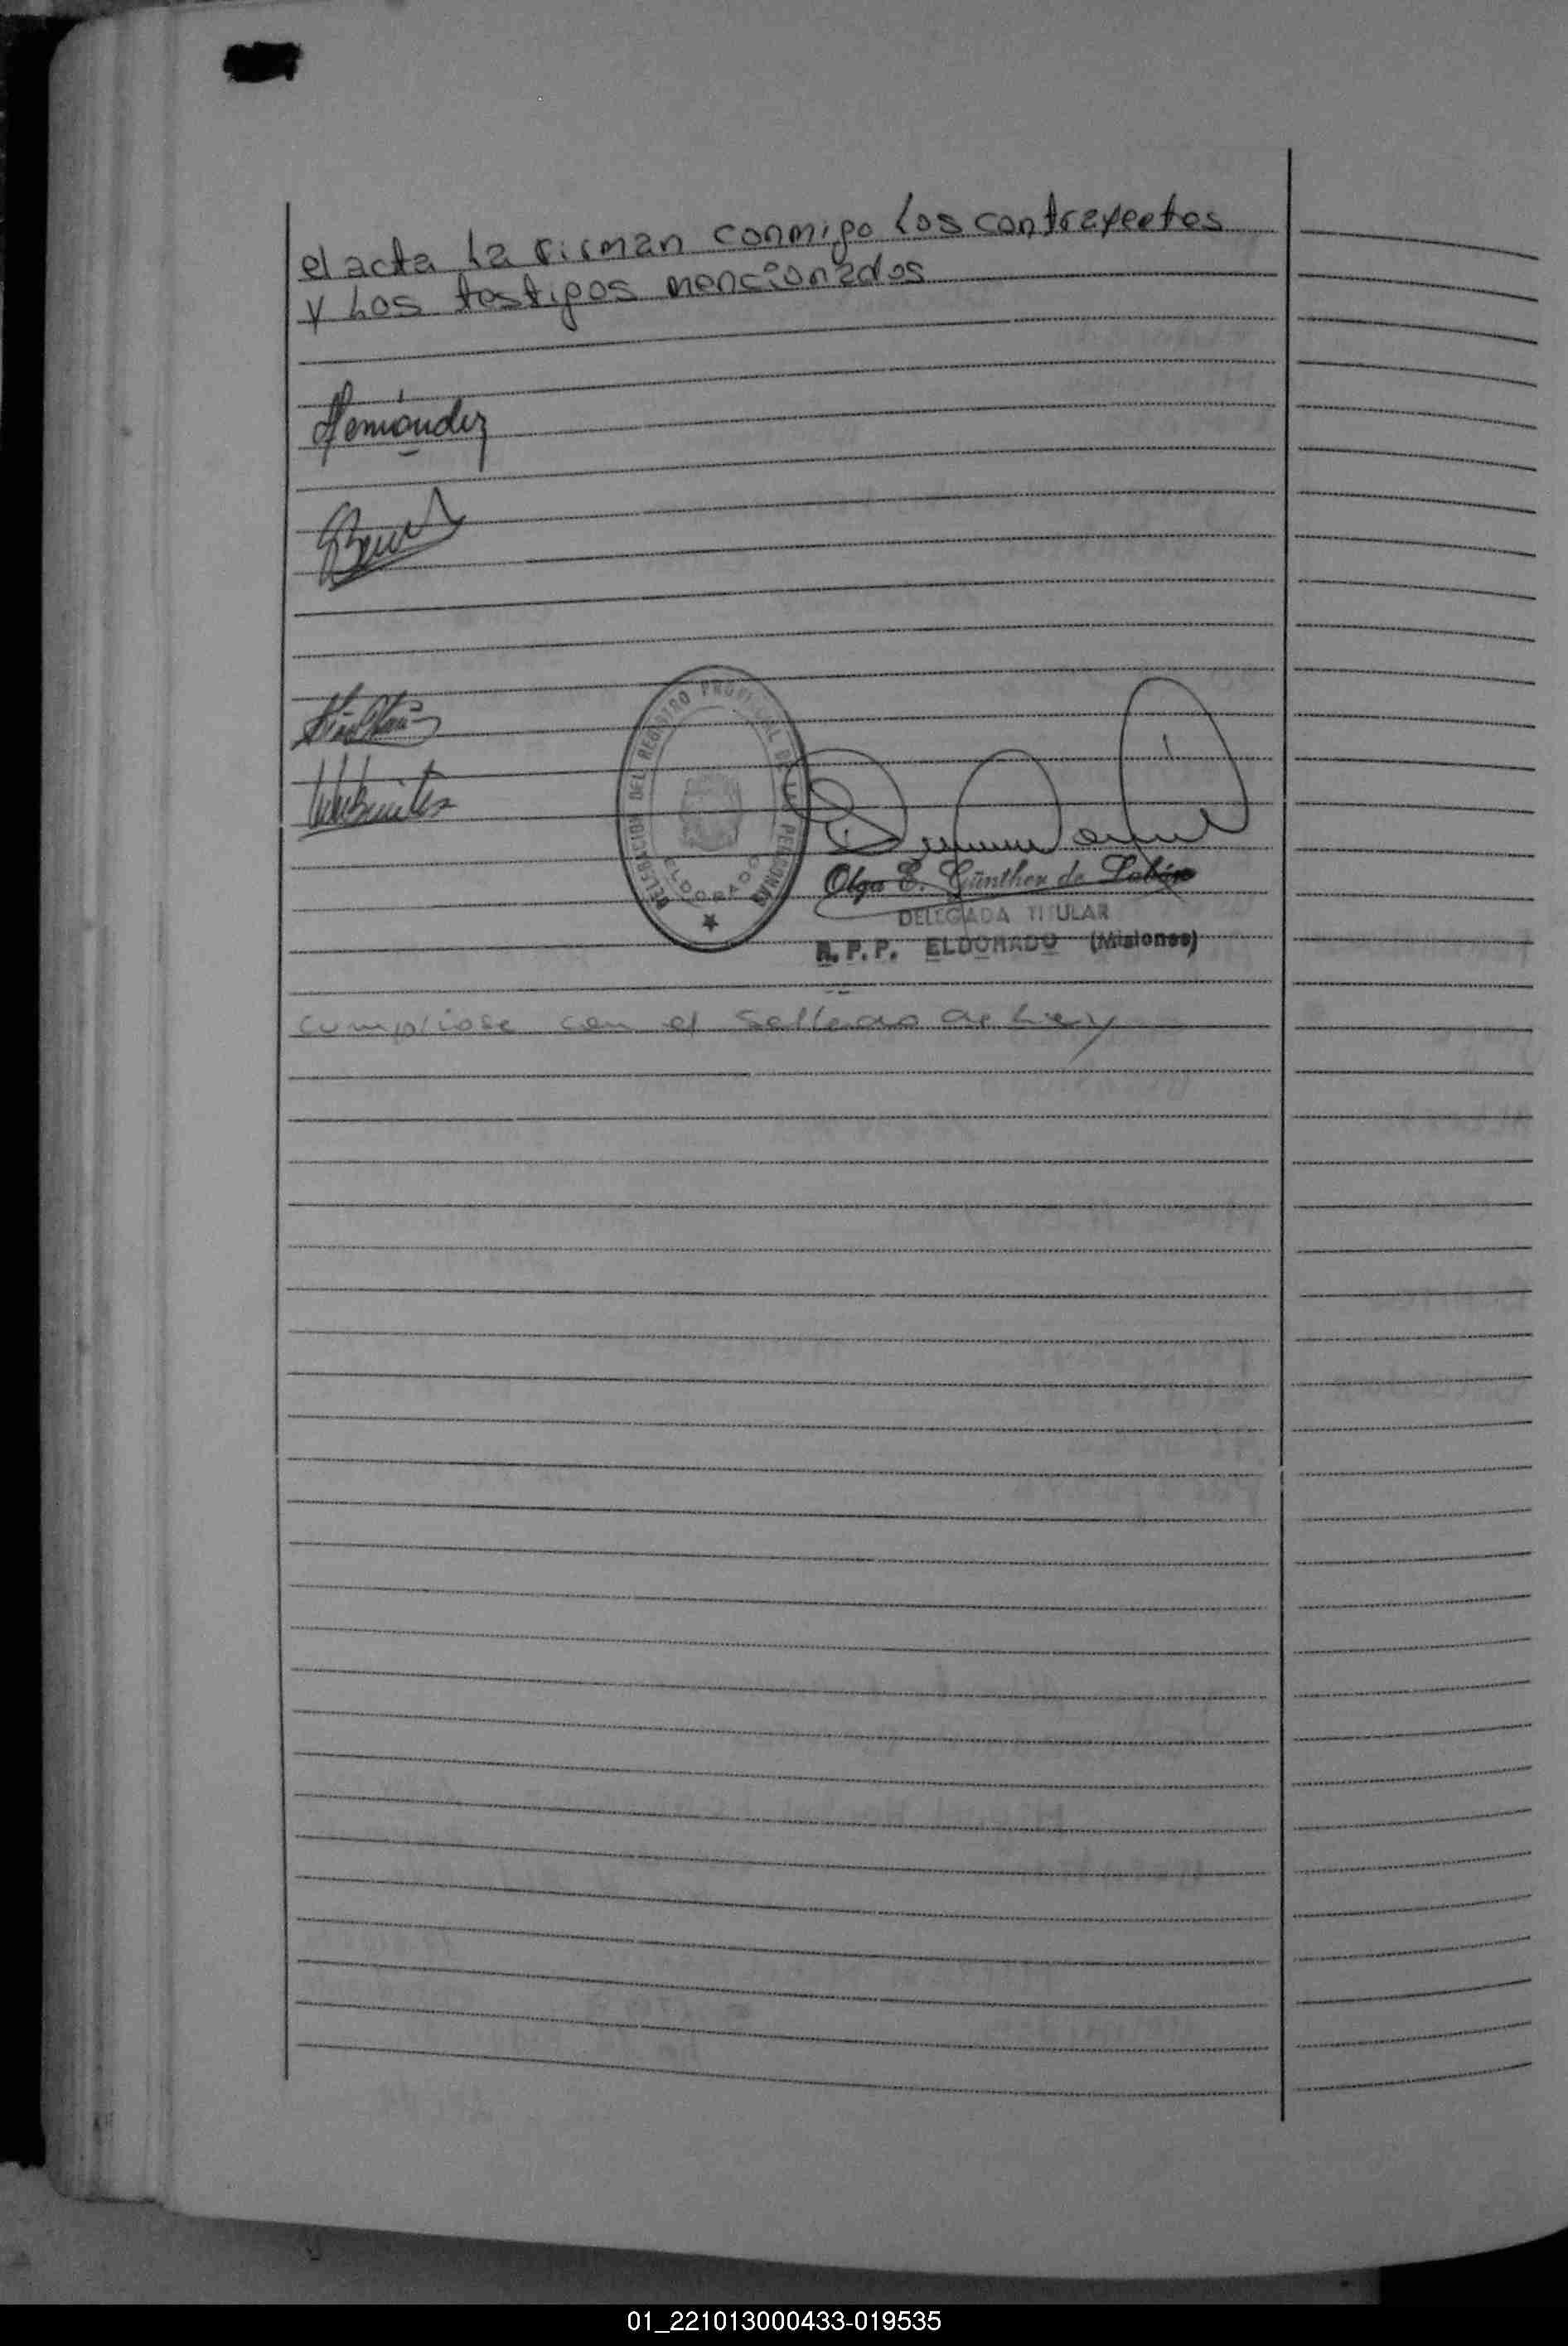 el acta la firman conmigo los contrayentes
y los testigos mencionados
Hernández
DELEGACION DEL REGISTRO PROVINCIAL DE LAS PERSONAS
ELDORADO
Olga E. Günther de
DELEGADA TITULAR
R. P. P. ELDORADO (Misiones)
cumpliose con el sellado de Ley
01_221013000433-019535